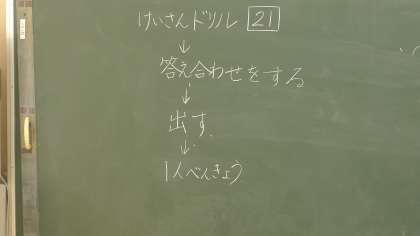 けいさんドリル 21
↓
答え合わせをする
↓
出す
↓
1人べんきょう